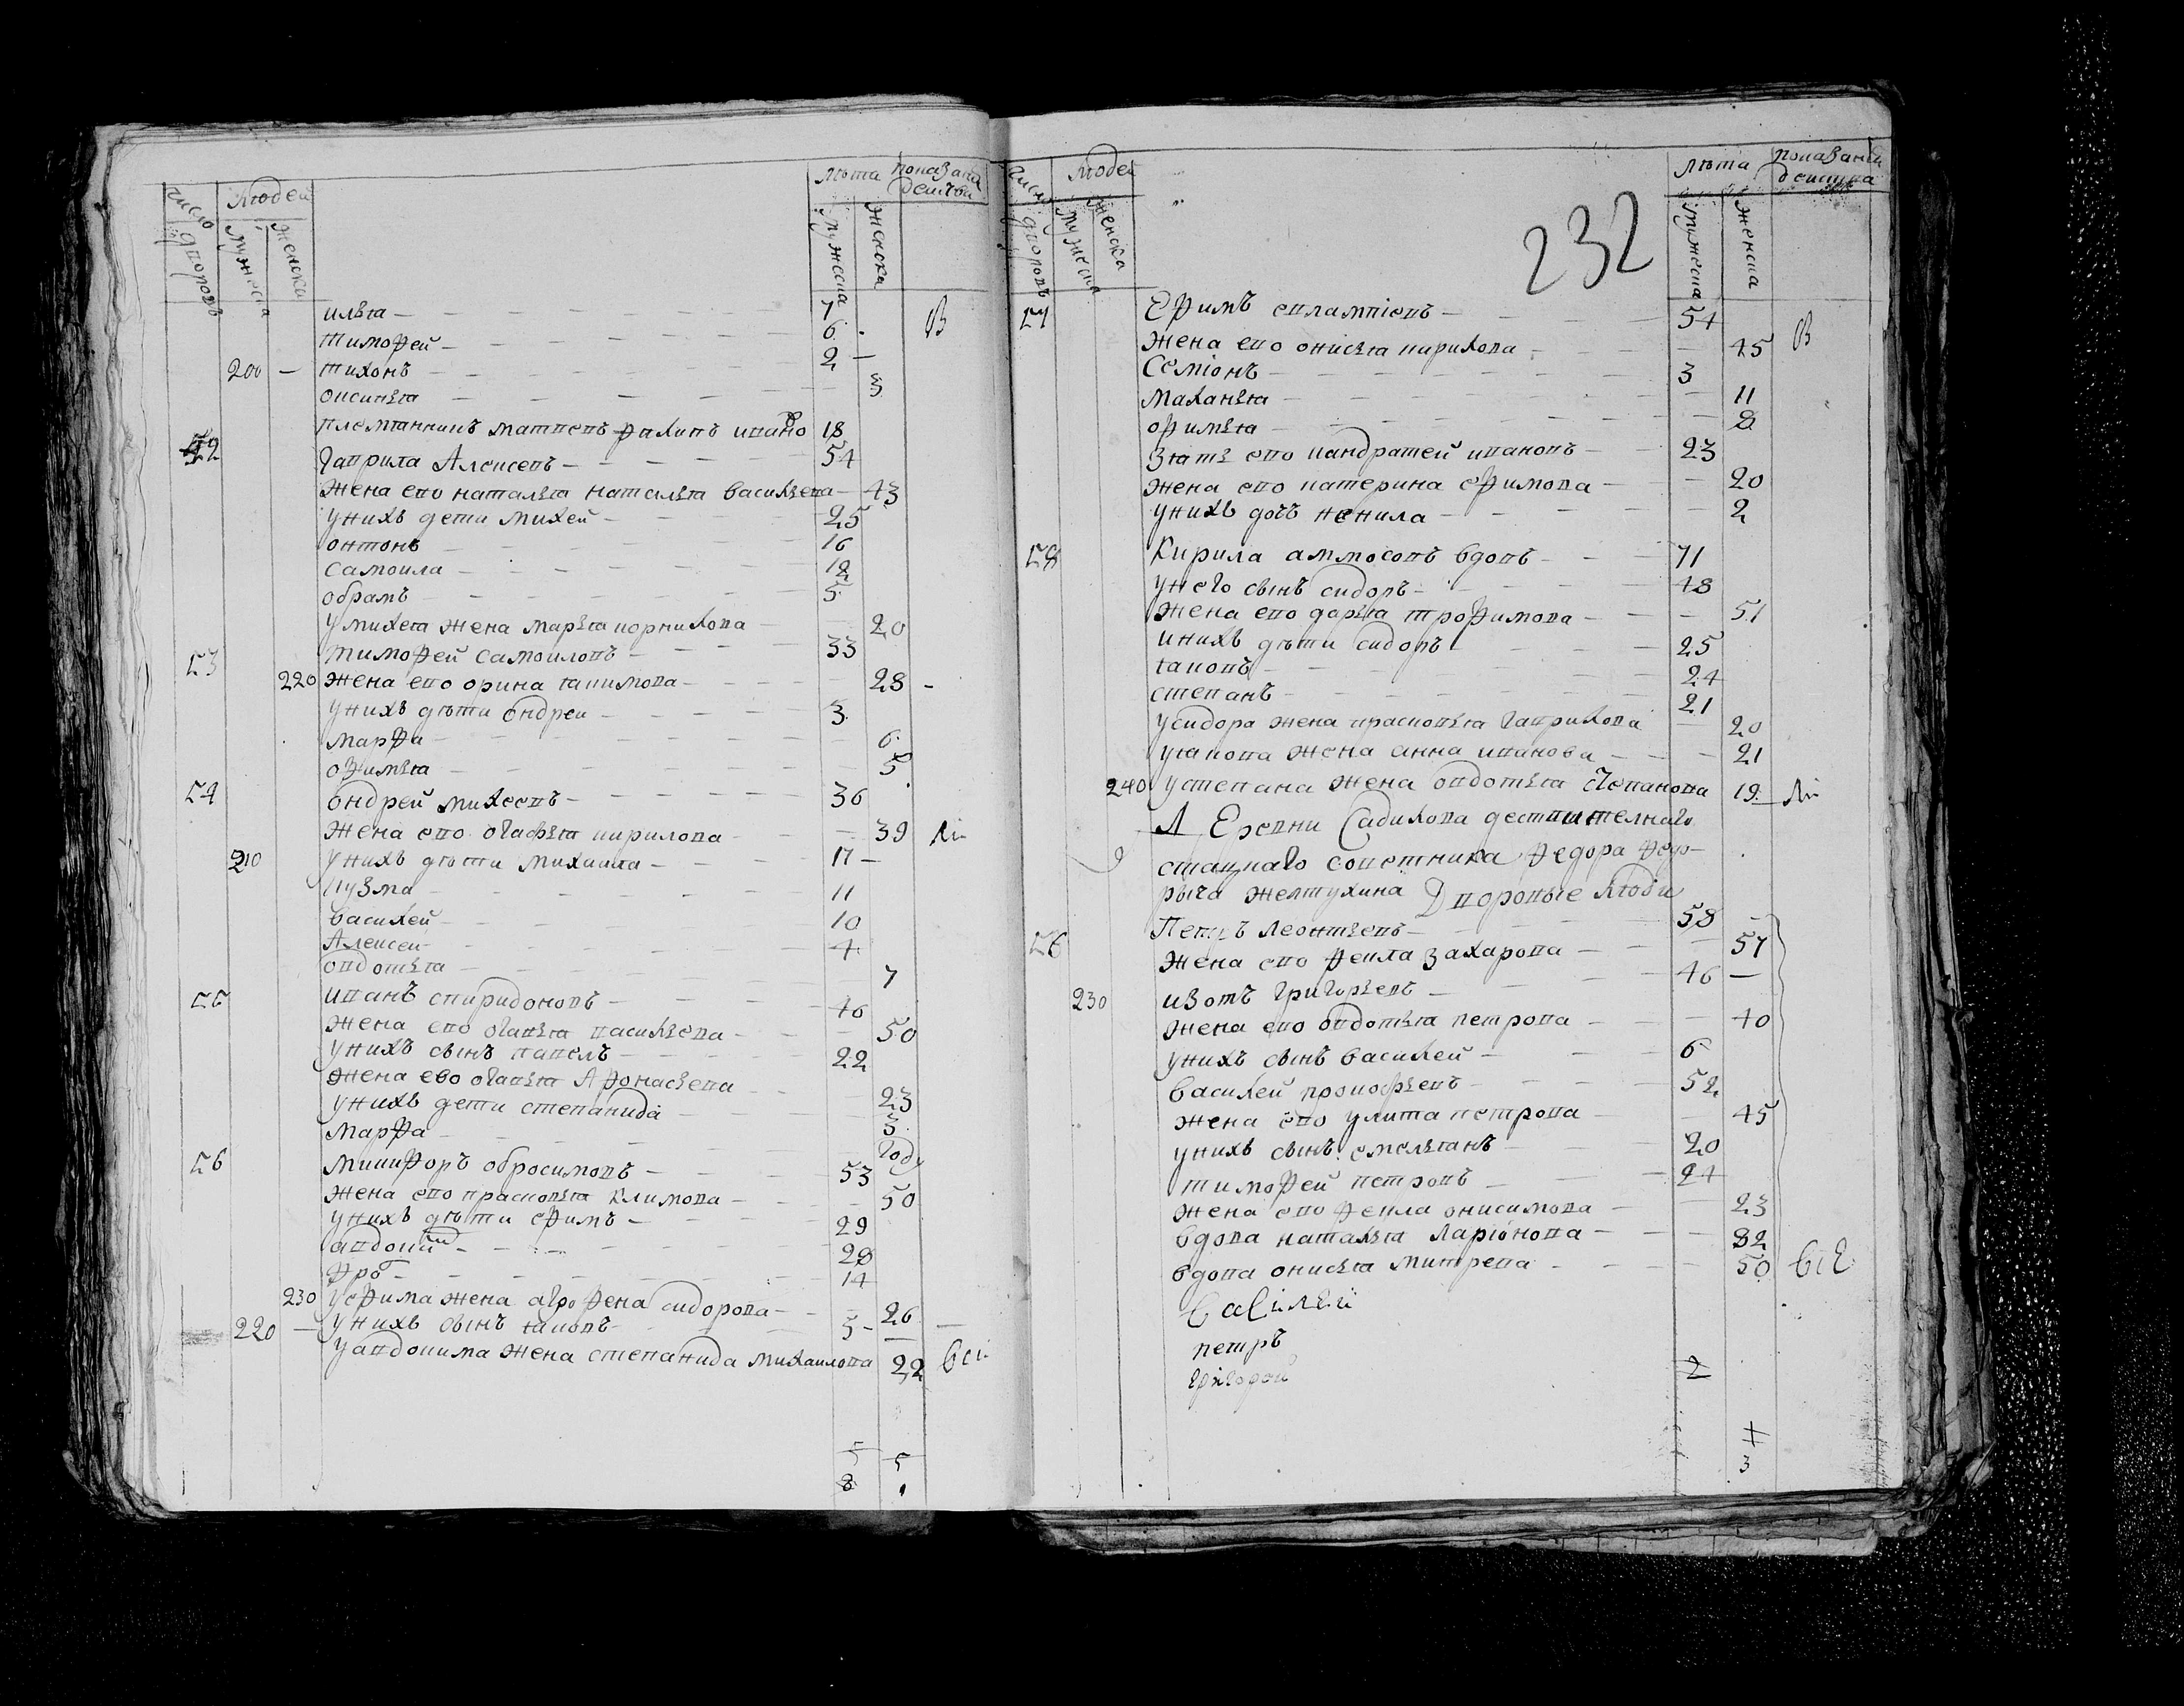 число дворовъ
Людей
мужеска
женска
лѣта
мужеска
женска
показана
илья 7 В
тимофей 6
200 тихонъ 2
оксинья 3
племянникъ матвевъ филипъ ивано 18
52 гаврила Алексевъ 54
жена ево наталья наталья васильева 43
у нихъ дети михей 25
онтонъ 16
самоила 12
обрамъ 5
у михея жена марья корнилова 20
53 тимофей самоиловъ 33
220 жена ево орина якимова 28
у нихъ дѣти ондреи 3
марфа 6
офимья 5
54 ондрей михеевъ 36
жена ево огафья кирилова 39
210 у нихъ дѣти михаила 17
кузма 11
василей 10
Алексеи 4
овдотья 7
55 иванъ спиридоновъ 46
жена ево огавья васильева 50
у нихъ сынъ павелъ 22
жена ево огавья Афонасьева 23
у нихъ дети степанида 3
марфа году
56 микифоръ обросимовъ 53
жена ево прасковья климова 50
у нихъ дѣти ефимъ 29
авдоким 28
фро 14
230 у ефима жена агрофена сидорова 26
220 у нихъ сынъ яковъ 5
у авдокима жена степанида михаилова 22 вси
5 5
8
число дворовъ
Людей
мужеска
женска
232
лѣта
мужеска
женска
57 Ефимъ евлампіевъ 54
жена ево онисья кирилова 45 В
Семіонъ 3
маланья 11
офимья 8
зять ево кандратей ивановъ 23
жена ево катерина ефимова 20
у нихъ дочь ненила 2
58 Кирила аммосовъ вдовъ 71
у него сынъ сидоръ 48
жена ево дарья трофимова 51
и нихъ дѣти сидоръ 25
яковъ 24
степанъ 21
у сидора жена прасковья гаврилова 20
у якова жена анна иванова 21
240 у степана жена овдотья степанова 19
Д Еревни Садикова дествителнаго
стацкаго советника федора фед-
рыча желтухина Дворовые люди
Петръ леонтьевъ 58
56 жена ево фекла захарова 57
230 изотъ григорьевъ 46
жена ево овдотья петрова 40
у нихъ сынъ василей 6
василей прокофьевъ 52
жена ево улита петрова 45
у нихъ сынъ емельянъ 20
тимофей петровъ 24
жена ево фекла онисимова 23
вдова наталья ларіонова 82
вдова онисья митрева 50 всЕ
василей
петръ
григорей
2
3